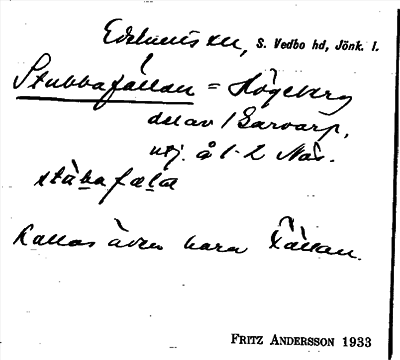 Edshults sn, S. Vedbo hd, Jönk. l.
Stubbafállan = Högeberg
del av 1 Barvarp,
utj. å 1-2 Näs.
stàbafæla
Kallas även bara Fällan.
FRITZ ANDERSSON 1933